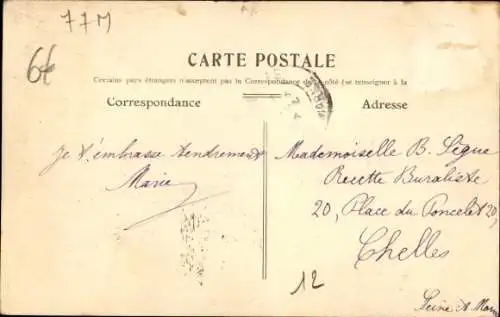 77M
6€
CARTE POSTALE
Certains pays étrangers n'acceptent pas la Correspondance de ce côté (se renseigner à la
Correspondance
Adresse
Je t'embrasse tendrement
Marie
Mademoiselle B. Sègue
Recette Buraliste
20, Place du Poncelet 20,
Chelles
12
Seine & Marne